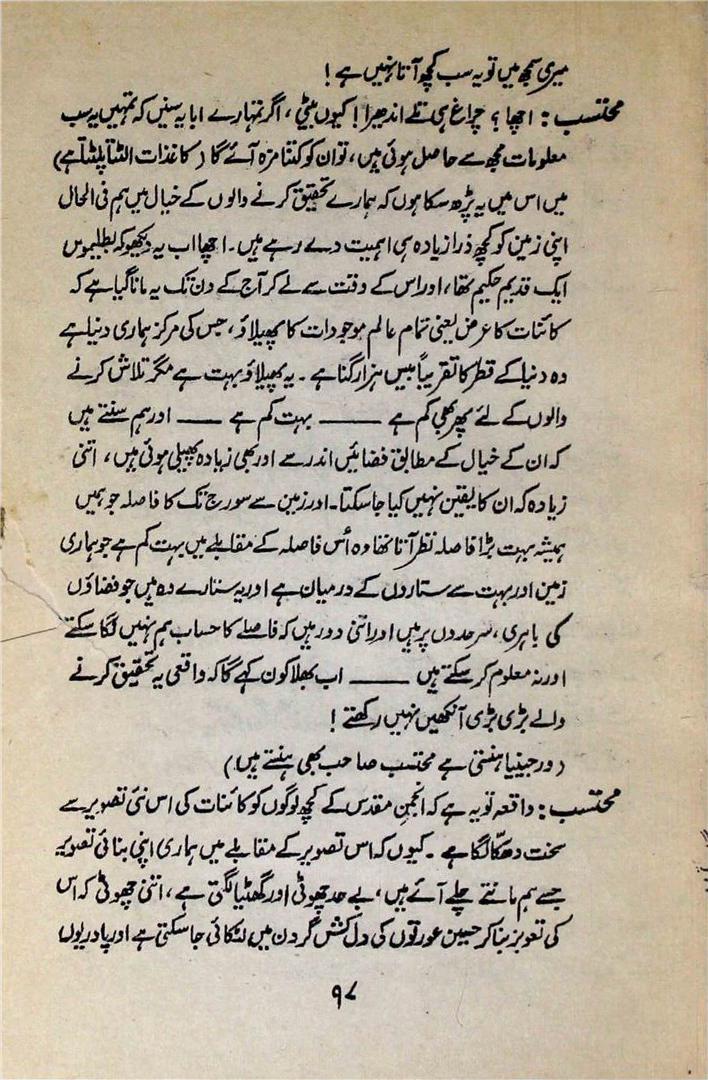 میری سمجھ میں تو یہ سب کچھ آتا نہیں ہے !
محتسب : اچھا ؟ چراغ ہی تلے اندھیرا ! کیوں بیٹی ، اگر تمہارے ابا یہ سنیں کہ تمہیں یہ سب
معلومات مجھ سے حاصل ہوئی ہیں ، تو ان کو کتنا مزہ آئے گا ( کاغذات الٹتا پلٹتا ہے )
میں اس میں یہ پڑھ سکا ہوں کہ ہمارے تحقیق کرنے والوں کے خیال میں ہم فی الحال
اپنی زمین کو کچھ ذرا زیادہ ہی اہمیت دے رہے ہیں ۔ اچھا اب یہ دیکھو کہ بطلیموس
ایک قدیم حکیم تھا ، اور اس کے وقت سے لے کر آج کے دن تک یہ مانا گیا ہے کہ
کائنات کا عرض یعنی تمام عالم موجودات کا پھیلاؤ ، جس کی مرکز ہماری دنیا ہے
وہ دنیا کے قطر کا تقریباً بیس ہزار گنا ہے ۔ یہ پھیلاؤ بہت ہے مگر تلاش کرنے
والوں کے لئے پھر بھی کم ہے ــــــ بہت کم ہے ــــــ اور ہم سنتے ہیں
کہ ان کے خیال کے مطابق فضائیں اندر سے اور بھی زیادہ پھیلی ہوئی ہیں ، اتنی
زیادہ کہ ان کا یقین نہیں کیا جا سکتا ۔ اور زمین سے سورج تک کا فاصلہ جو ہمیں
ہمیشہ بہت بڑا فاصلہ نظر آتا تھا وہ اُس فاصلہ کے مقابلے میں بہت کم ہے جو ہماری
زمین اور بہت سے ستاروں کے درمیان ہے اور یہ ستارے وہ ہیں جو فضاؤں
کی باہری ، سرحدوں پر ہیں اور اتنی دور ہیں کہ فاصلے کا حساب ہم نہیں لگا سکتے
اور نہ معلوم کر سکتے ہیں ــــــ اب بھلا کون کہے گا کہ واقعی یہ تحقیق کرنے
والے بڑی بڑی آنکھیں نہیں رکھتے !
( ورجینیا ہنستی ہے محتسب صاحب بھی ہنستے ہیں )
محتسب : واقعہ تو یہ ہے کہ انجمنِ مقدس کے کچھ لوگوں کو کائنات کی اس نئی تصویر سے
سخت دھکّا لگا ہے ۔ کیوں کہ اس تصویر کے مقابلے میں ہماری اپنی بنائی تصویر
جسے ہم مانتے چلے آئے ہیں ، بے حد چھوٹی اور گھٹیا لگتی ہے ، اتنی چھوٹی کہ اس
کی تعویز بنا کر حسین عورتوں کی دل کش گردن میں لٹکائی جا سکتی ہے اور پادریوں
۹۷